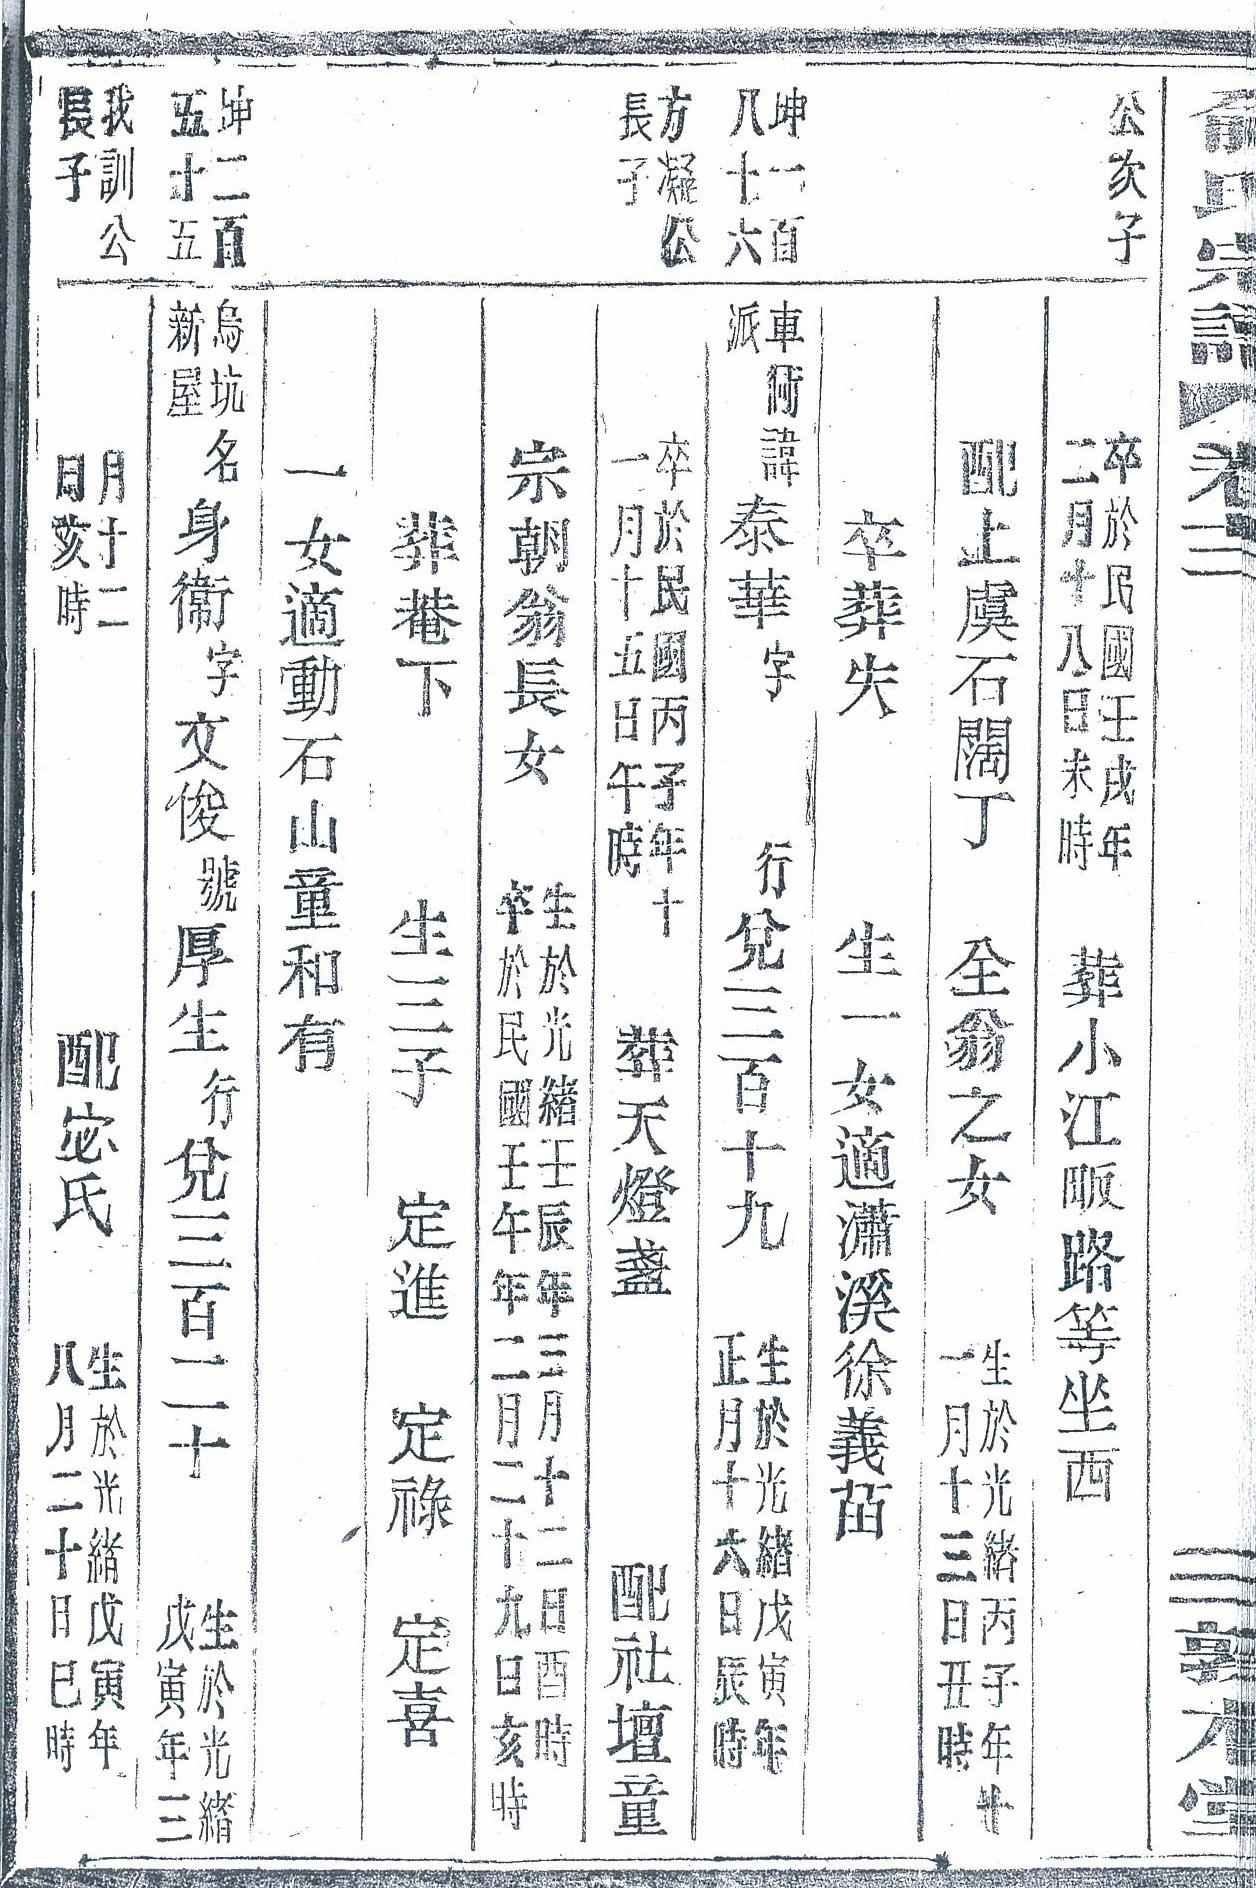 俞氏宗譜 卷三 三 敦本堂
公次子
卒於民國壬戌年
二月十八日未時
葬小江畈路等坐西
配上虞石闊丁 全翁之女
生於光緒丙子年十
一月十三日丑時
卒葬失 生一女適瀟溪徐義茁
坤一百
八十六
方凝公
長子
車衖
派
諱泰華字 行兌三百十九
生於光緒戊寅年
正月十六日辰時
卒於民國丙子年十
一月十五日午時
葬天燈盞 配社壇童
宗朝翁長女
生於光緒壬辰年三月十二日酉時
卒於民國壬午年二月二十九日亥時
葬菴下 生三子 定進 定祿 定喜
一女適動石山童和有
坤二百
五十五
我訓公
長子
烏坑
新屋
名身衞字文俊號厚生行兌三百二十
生於光緒
戊寅年三
月十二
日亥時
配宓氏
生於光緒戊寅年
八月二十日巳時